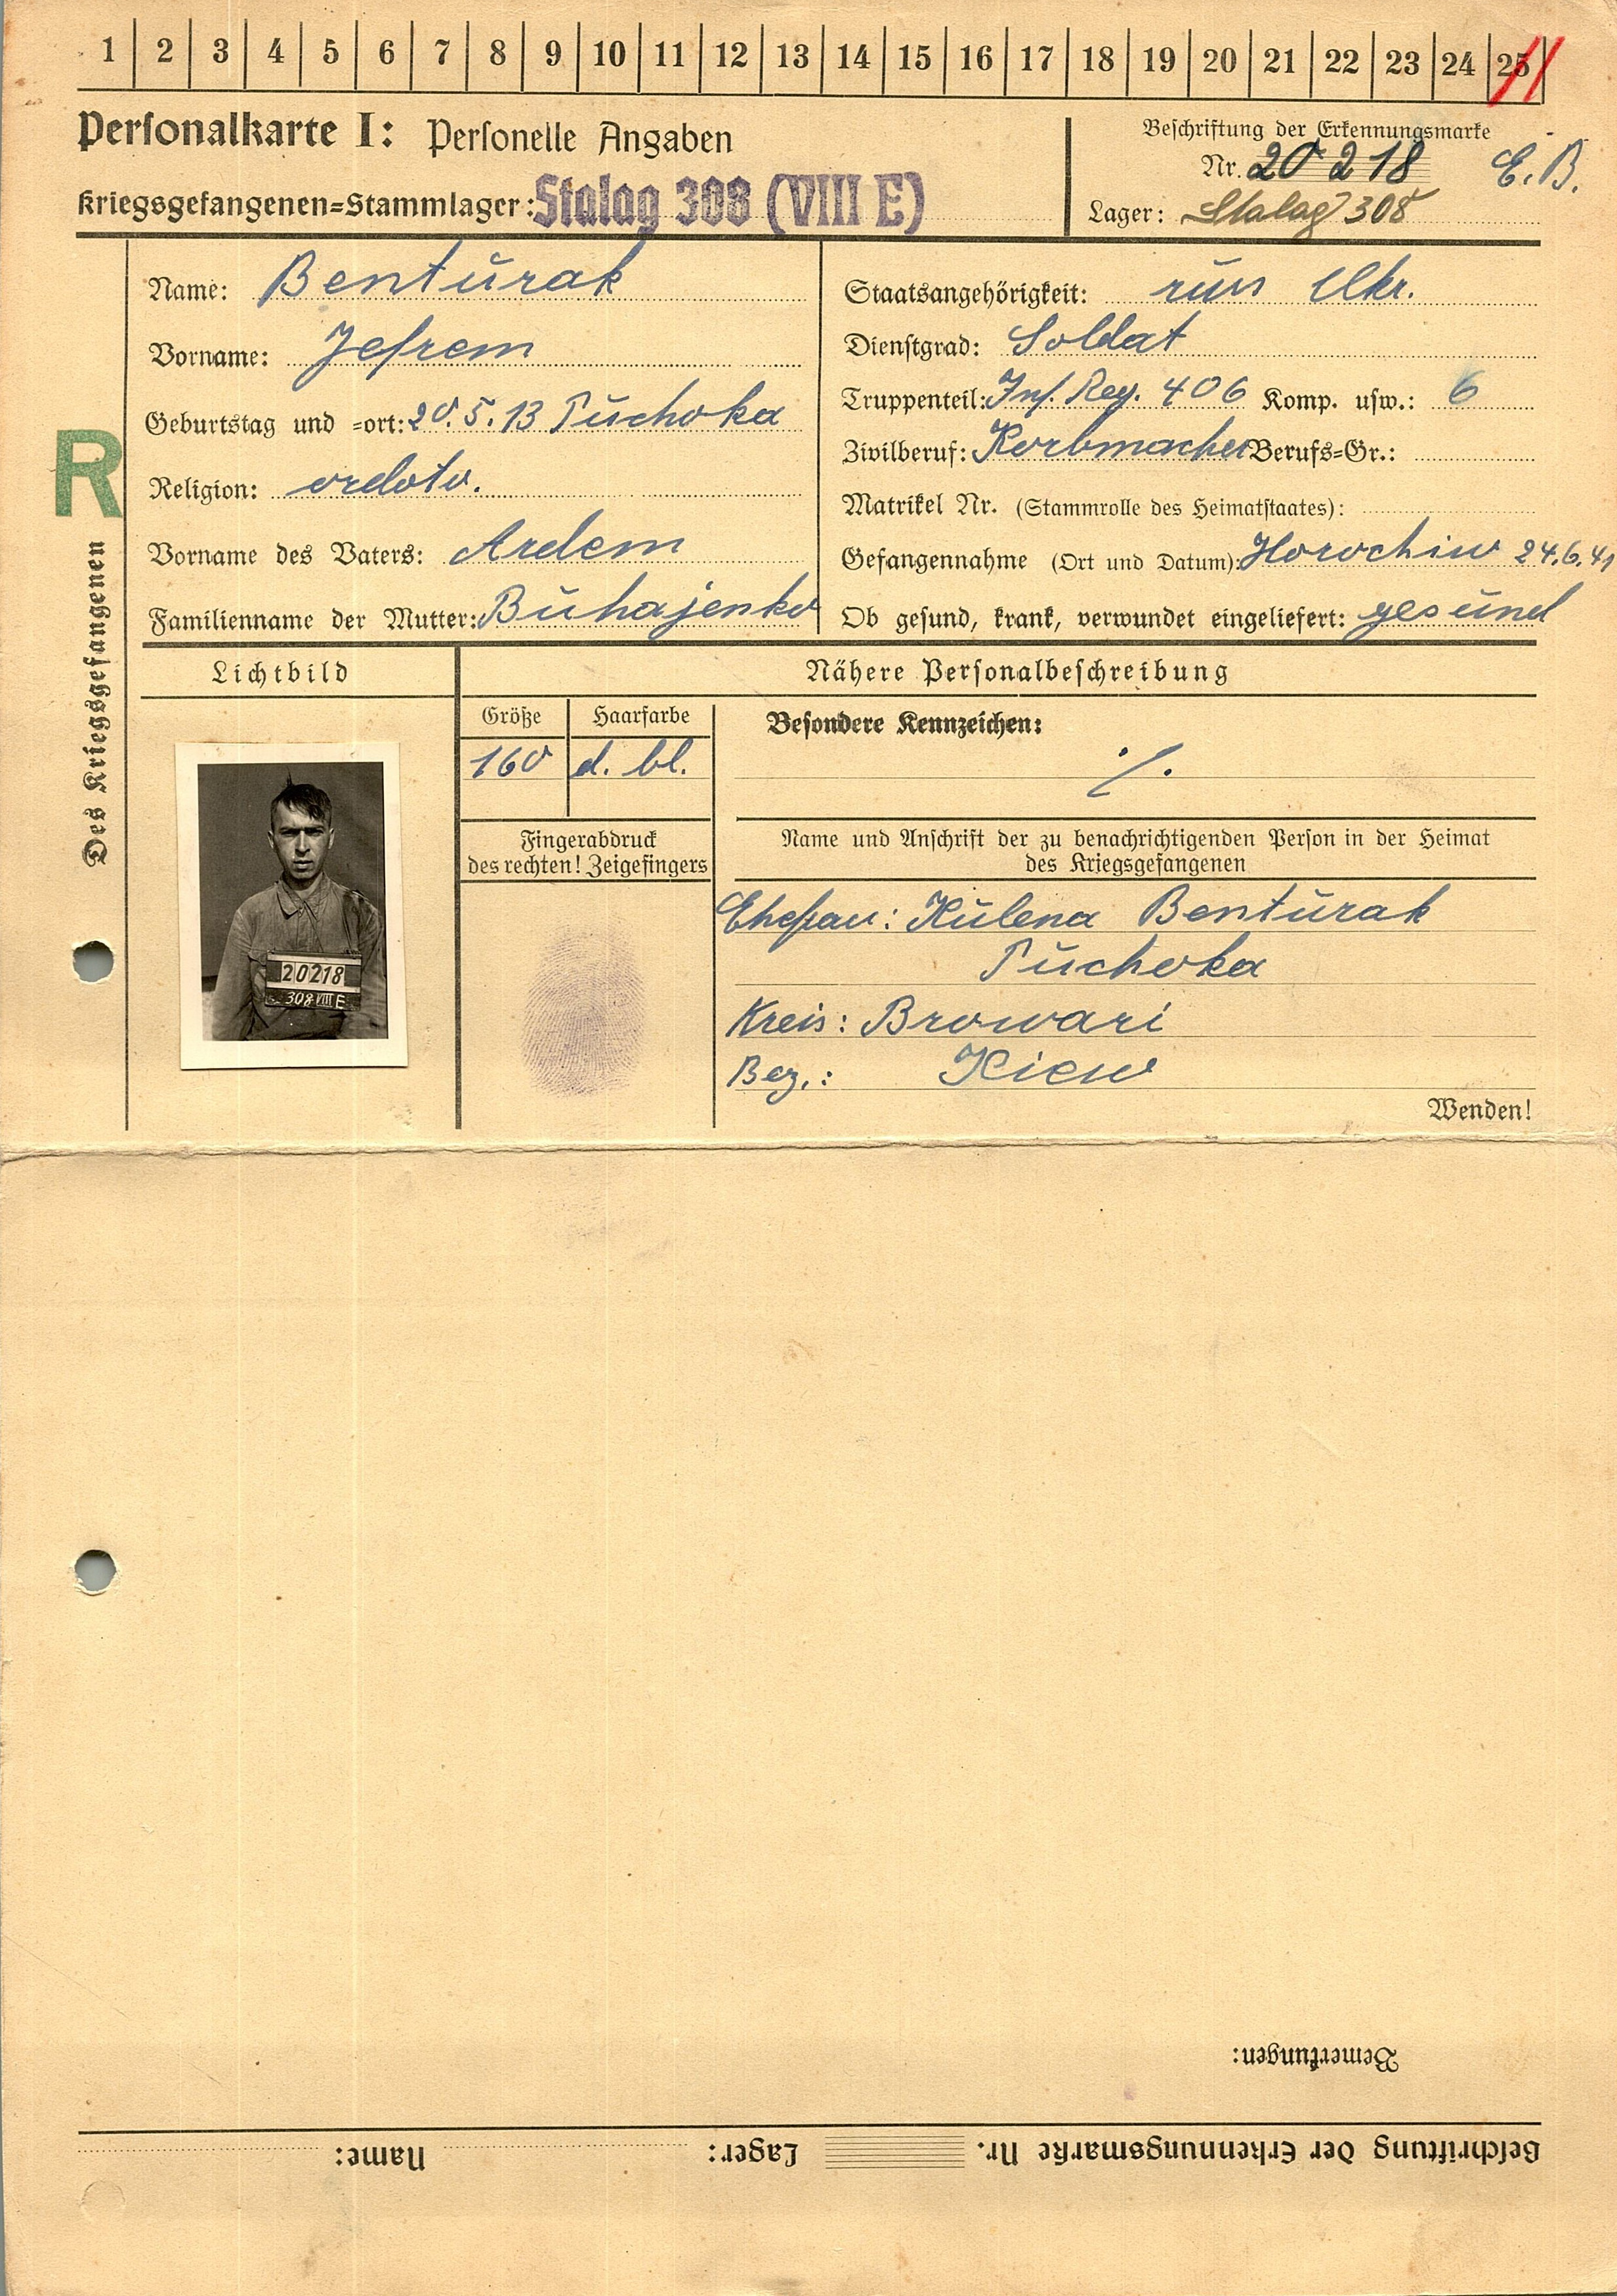 1 2 3 4 5 6 7 8 9 10 11 12 13 14 15 16 17 18 19 20 21 22 23 24 25
Personalkarte I: Personelle Angaben
Kriegsgefangenen=Stammlager: Stalag 308 (VIII E)
Beschriftung der Erkennungsmarke
Nr. 20218 E. B.
Lager: Stalag 308
R
Des Kriegsgefangenen
Name: Benturak
Vorname: Jefrem
Geburtstag und =ort: 20.5.13 Puchoka
Religion: ordoto.
Vorname des Vaters: Ardem
Familienname der Mutter: Buhajenko
Staatsangehörigkeit: russ Ukr.
Dienstgrad: Soldat
Truppenteil: Inf. Reg. 406 Komp. usw.: 6
Zivilberuf: Korbmacher Berufs=Gr.:
Matrikel Nr. (Stammrolle des Heimatstaates):
Gefangennahme (Ort und Datum): Horochiw 24.6.41
Ob gesund, krank, verwundet eingeliefert: gesund
Lichtbild
20218
308 VIII E
Nähere Personalbeschreibung
Größe Haarfarbe
160 d. bl.
Besondere Kennzeichen:
./.
Fingerabdruck
des rechten! Zeigefingers
Name und Anschrift der zu benachrichtigenden Person in der Heimat
des Kriegsgefangenen
Ehefrau: Kulena Benturak
Puchoka
Kreis: Browari
Bez.: Kiew
Wenden!
Bemerkungen:
Beschriftung der Erkennungsmarke Nr. Lager: Name: